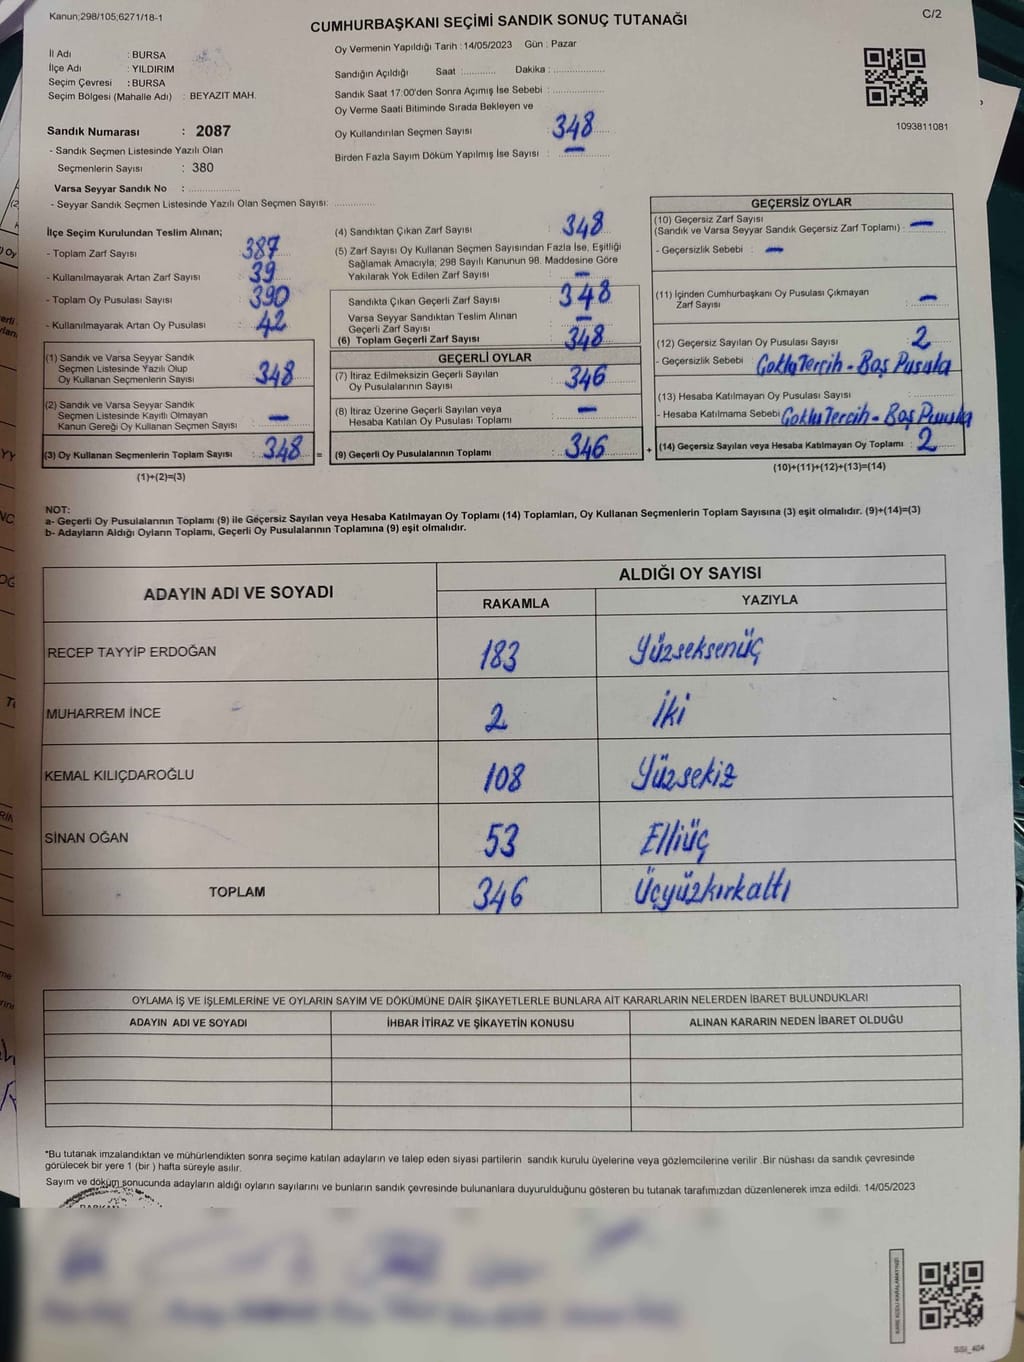 Kanun;298/105;6271/18-1
C/2
CUMHURBAŞKANI SEÇİMİ SANDIK SONUÇ TUTANAĞI
İl Adı : BURSA
İlçe Adı : YILDIRIM
Seçim Çevresi : BURSA
Seçim Bölgesi (Mahalle Adı) : BEYAZIT MAH.
Sandık Numarası : 2087
- Sandık Seçmen Listesinde Yazılı Olan
Seçmenlerin Sayısı : 380
Varsa Seyyar Sandık No : ..................
- Seyyar Sandık Seçmen Listesinde Yazılı Olan Seçmen Sayısı: ..............
Oy Vermenin Yapıldığı Tarih : 14/05/2023 Gün : Pazar
Sandığın Açıldığı Saat :............ Dakika : ..................
Sandık Saat 17:00'den Sonra Açımış İse Sebebi : ..................
Oy Verme Saati Bitiminde Sırada Bekleyen ve
Oy Kullandırılan Seçmen Sayısı : 348
Birden Fazla Sayım Döküm Yapılmış İse Sayısı : —
1093811081
İlçe Seçim Kurulundan Teslim Alınan;
- Toplam Zarf Sayısı : 387
- Kullanılmayarak Artan Zarf Sayısı : 39
- Toplam Oy Pusulası Sayısı : 390
- Kullanılmayarak Artan Oy Pusulası : 42
(1) Sandık ve Varsa Seyyar Sandık
Seçmen Listesinde Yazılı Olup
Oy Kullanan Seçmenlerin Sayısı : 348
(2) Sandık ve Varsa Seyyar Sandık
Seçmen Listesinde Kayıtlı Olmayan
Kanun Gereği Oy Kullanan Seçmen Sayısı : —
(3) Oy Kullanan Seçmenlerin Toplam Sayısı : 348
(1)+(2)=(3)
(4) Sandıktan Çıkan Zarf Sayısı : 348
(5) Zarf Sayısı Oy Kullanan Seçmen Sayısından Fazla İse, Eşitliği
Sağlamak Amacıyla; 298 Sayılı Kanunun 98. Maddesine Göre
Yakılarak Yok Edilen Zarf Sayısı : —
Sandıkta Çıkan Geçerli Zarf Sayısı : 348
Varsa Seyyar Sandıktan Teslim Alınan
Geçerli Zarf Sayısı : —
(6) Toplam Geçerli Zarf Sayısı : 348
GEÇERLİ OYLAR
(7) İtiraz Edilmeksizin Geçerli Sayılan
Oy Pusulalarının Sayısı : 346
(8) İtiraz Üzerine Geçerli Sayılan veya
Hesaba Katılan Oy Pusulaları Toplamı : —
= (9) Geçerli Oy Pusulalarının Toplamı : 346 +
GEÇERSİZ OYLAR
(10) Geçersiz Zarf Sayısı
(Sandık ve Varsa Seyyar Sandık Geçersiz Zarf Toplamı) : —
- Geçersizlik Sebebi : —
(11) İçinden Cumhurbaşkanı Oy Pusulası Çıkmayan
Zarf Sayısı : —
(12) Geçersiz Sayılan Oy Pusulası Sayısı : 2
- Geçersizlik Sebebi : Çoklu Tercih - Boş Pusula
(13) Hesaba Katılmayan Oy Pusulası Sayısı :
- Hesaba Katılmama Sebebi Çoklu Tercih - Boş Pusula
(14) Geçersiz Sayılan veya Hesaba Katılmayan Oy Toplamı : 2
(10)+(11)+(12)+(13)=(14)
NOT:
a- Geçerli Oy Pusulalarının Toplamı (9) ile Geçersiz Sayılan veya Hesaba Katılmayan Oy Toplamı (14) Toplamları, Oy Kullanan Seçmenlerin Toplam Sayısına (3) eşit olmalıdır. (9)+(14)=(3)
b- Adayların Aldığı Oyların Toplamı, Geçerli Oy Pusulalarının Toplamına (9) eşit olmalıdır.
ADAYIN ADI VE SOYADI ALDIĞI OY SAYISI
RAKAMLA YAZIYLA
RECEP TAYYİP ERDOĞAN 183 Yüzseksenüç
MUHARREM İNCE 2 İki
KEMAL KILIÇDAROĞLU 108 Yüzsekiz
SİNAN OĞAN 53 Elliüç
TOPLAM 346 Üçyüzkırkaltı
OYLAMA İŞ VE İŞLEMLERİNE VE OYLARIN SAYIM VE DÖKÜMÜNE DAİR ŞİKAYETLERLE BUNLARA AİT KARARLARIN NELERDEN İBARET BULUNDUKLARI
ADAYIN ADI VE SOYADI İHBAR İTİRAZ VE ŞİKAYETİN KONUSU ALINAN KARARIN NEDEN İBARET OLDUĞU
*Bu tutanak imzalandıktan ve mühürlendikten sonra seçime katılan adayların ve talep eden siyasi partilerin sandık kurulu üyelerine veya gözlemcilerine verilir .Bir nüshası da sandık çevresinde
görülecek bir yere 1 (bir ) hafta süreyle asılır.
Sayım ve döküm sonucunda adayların aldığı oyların sayılarını ve bunların sandık çevresinde bulunanlara duyurulduğunu gösteren bu tutanak tarafımızdan düzenlenerek imza edildi. 14/05/2023
SSI_404